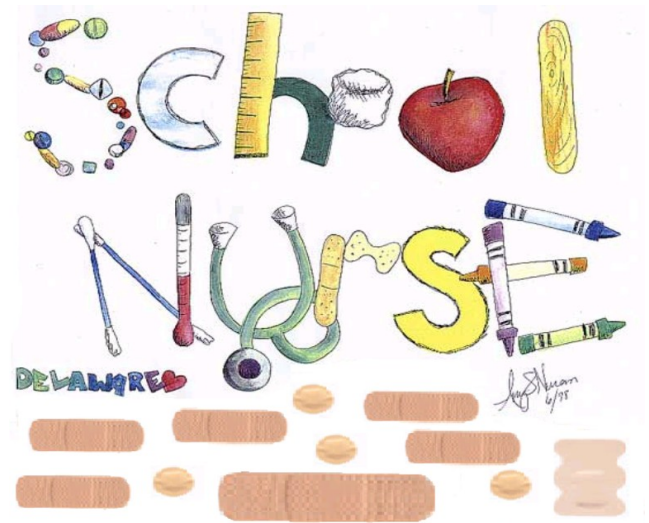 School
NUrSE
DELAWARE
6/98